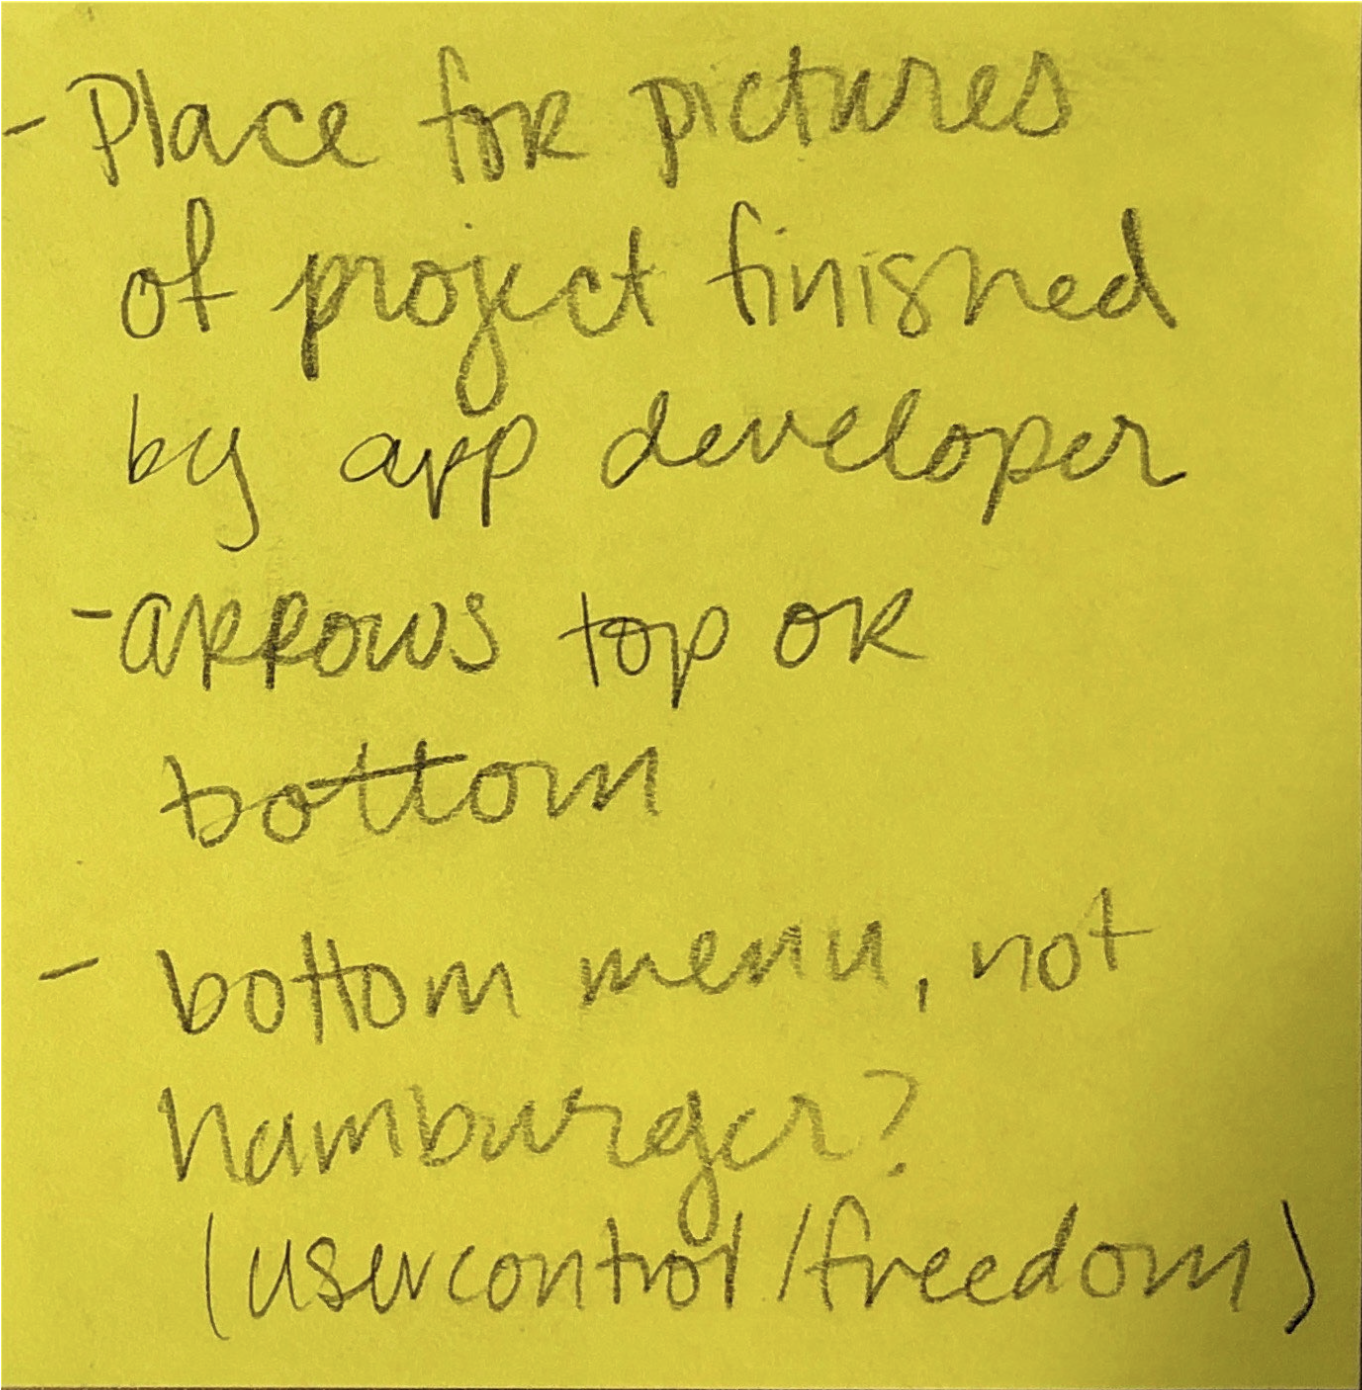 - Place for pictures
of project finished
by app developer
- arrows top or
bottom
- bottom menu, not
hamburger?
(user control/freedom)